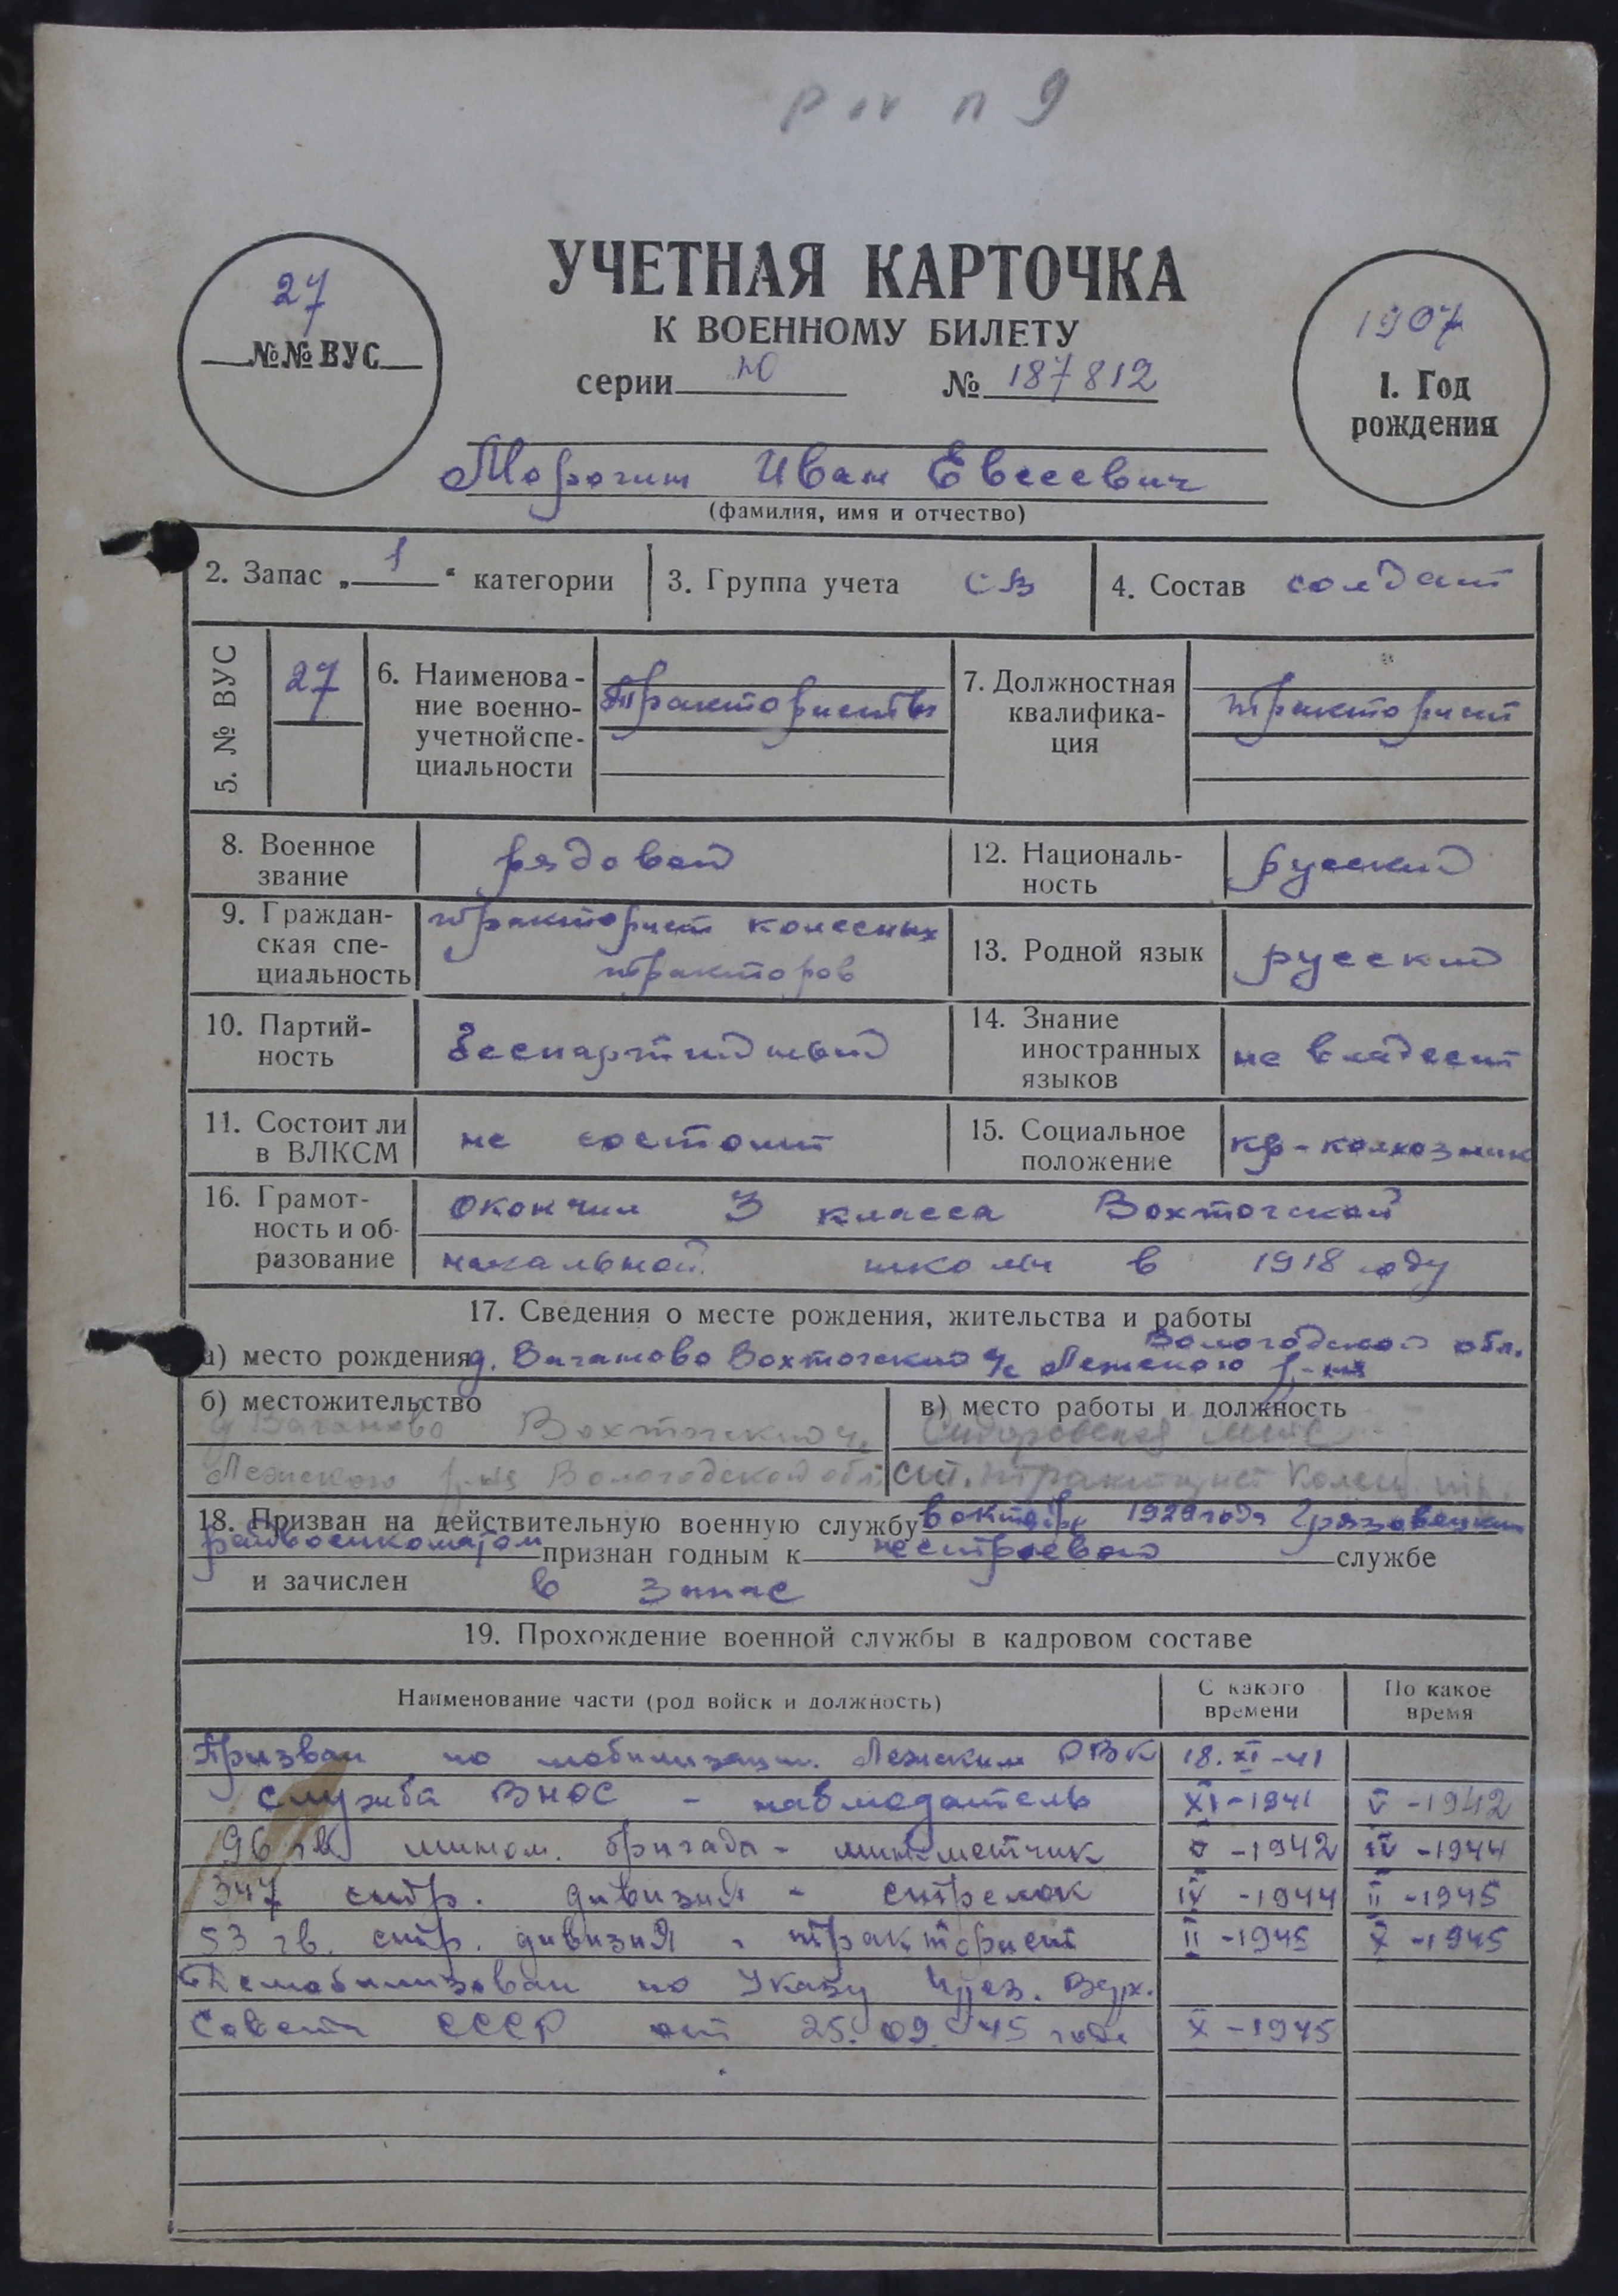 27
№№ ВУС
УЧЕТНАЯ КАРТОЧКА
К ВОЕННОМУ БИЛЕТУ
серии Ю № 187812
1907
1. Год
рождения
Иван Евсеевич
(фамилия, имя и отчество)
2. Запас „ 1 “ категории
3. Группа учета СВ
4. Состав солдат
5. № ВУС
27
6. Наименова-
ние военно-
учетной спе-
циальности
Трактористы
7. Должностная
квалифика-
ция
тракторист
8. Военное
звание
рядовой
12. Националь-
ность
русский
9. Граждан-
ская спе-
циальность
тракторист колесных
тракторов
13. Родной язык
русский
10. Партий-
ность
беспартийный
14. Знание
иностранных
языков
не владеет
11. Состоит ли
в ВЛКСМ
не состоит
15. Социальное
положение
кр-колхозник
16. Грамот-
ность и об-
разование
окончил 3 класса Вохтогской
начальной школы в 1918 году
17. Сведения о месте рождения, жительства и работы
Вологодской обл.
а) место рождения д. Ваганово Вохтогский с/с Лежского р-на
б) местожительство
д Ваганово Вохтогский
Лежского р-на Вологодской обл.
в) место работы и должность
Сидоровская МТС
ст. тракторист колесн. тр.
18. Призван на действительную военную службу в октябре 1929 года Грязовецким
райвоенкоматом признан годным к нестроевой службе
и зачислен в запас
19. Прохождение военной службы в кадровом составе
Наименование части (род войск и должность)
С какого
времени
По какое
время
Призван по мобилизации Лежским РВК 18.XI-41
Служба ВНОС - наблюдатель XI-1941 V-1942
96 мином. бригада - минометчик V-1942 IV-1944
347 стр. дивизия - стрелок IV-1944 II-1945
53 гв. стр. дивизия - тракторист II-1945 X-1945
Демобилизован по Указу През. Верх.
Совета СССР от 25.09.45 года X-1945